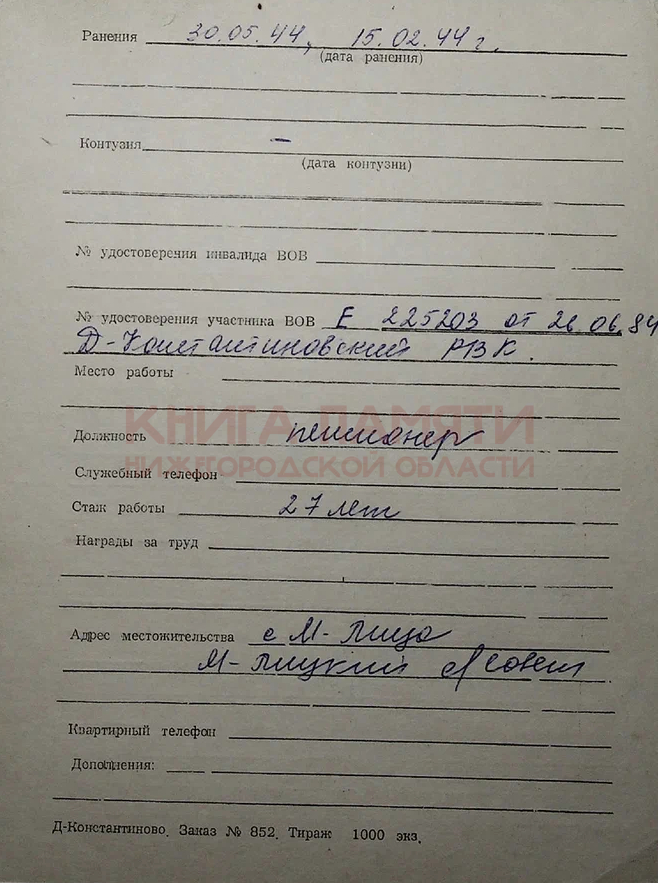 Ранения 30.05.44, 15.02.44 г.
(дата ранения)
Контузия –
(дата контузии)
№ удостоверения инвалида ВОВ
№ удостоверения участника ВОВ Е 225203 от 26.06.84
Д-Константиновский РВК.
Место работы
КНИГА ПАМЯТИ
Должность пенсионер
НИЖЕГОРОДСКОЙ ОБЛАСТИ
Служебный телефон
Стаж работы 27 лет
Награды за труд
Адрес местожительства с М-Пица
М-Пицкий с/совет
Квартирный телефон
Дополнения:
Д-Константиново. Заказ № 852. Тираж 1000 экз.